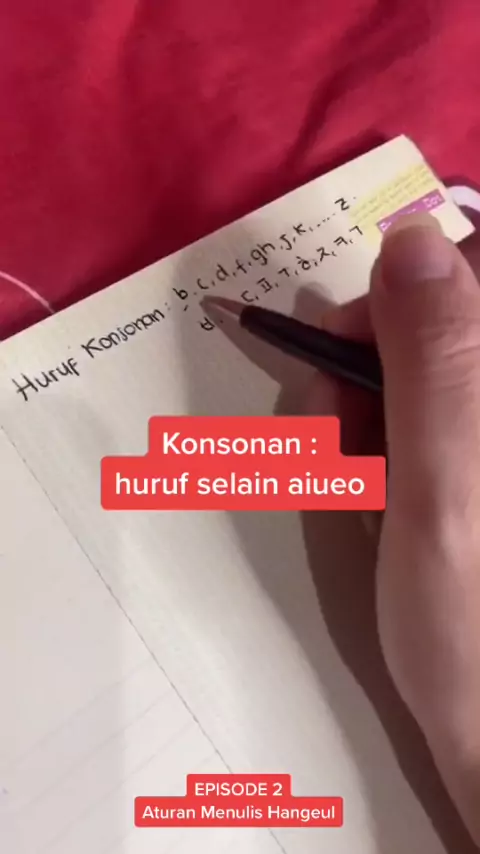 Huruf Konsonan : b, c, d, f, gh, j, k, .... z.
ㅂ, ㄷ, ㅍ, ㄱ, ㅎ, ㅈ, ㅋ, ㄱ
Konsonan :
huruf selain aiueo
EPISODE 2
Aturan Menulis Hangeul